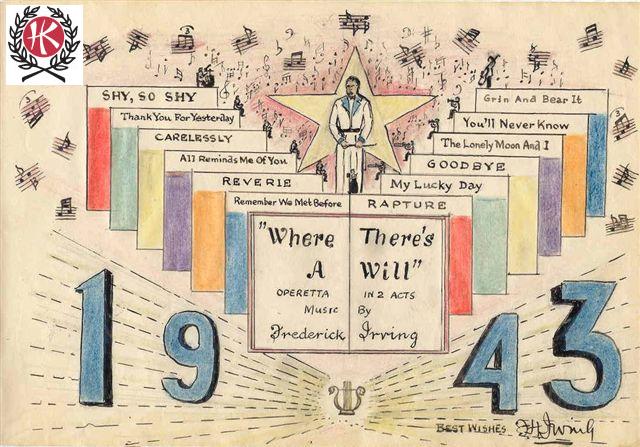 K
SHY, SO SHY
Thank You For Yesterday
CARELESSLY
All Reminds Me Of You
REVERIE
Remember We Met Before
Grin And Bear It
You'll Never Know
The Lonely Moon And I
GOODBYE
My Lucky Day
RAPTURE
"Where There's
A Will"
OPERETTA IN 2 ACTS
Music By
Frederick Irving
1943
BEST WISHES Irving